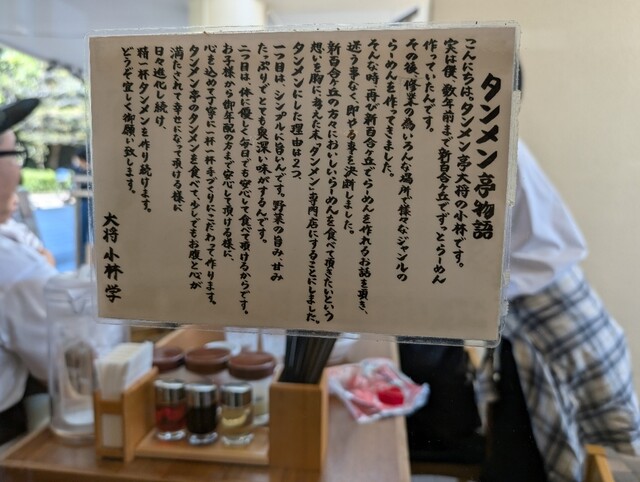 タンメン亭物語
こんにちは、タンメン亭大将の小林です。
実は僕、数年前まで新百合ヶ丘でずっとらーめん
作っていたんです。
その後、修業の為いろんな場所で様々なジャンルの
らーめんを作ってきました。
そんな時、再び新百合ヶ丘でらーめんを作れるお話を頂き、
迷う事なく、即やる事を決断しました。
新百合ヶ丘の方々においしいらーめんを食べて頂きたいという
想いを胸に、考えた末、「タンメン」専門店にすることにしました。
タンメンにした理由は2つ、
一つ目は、シンプルに旨いんです。野菜の旨み、甘み
たっぷりでとても奥深い味がするんです。
二つ目は、体に優しく毎日でも安心して食べて頂けるからです。
お子様から御年配の方まで安心して頂ける様に、
心を込めて丁寧に一杯一杯手づくりにこだわって作ります。
タンメン亭のタンメンを食べて、少しでもお腹と心が
満たされて幸せになって頂ける様に
日々進化し続け、
精一杯タンメンを作り続けます。
どうぞ宜しく御願い致します。
大将 小林 学